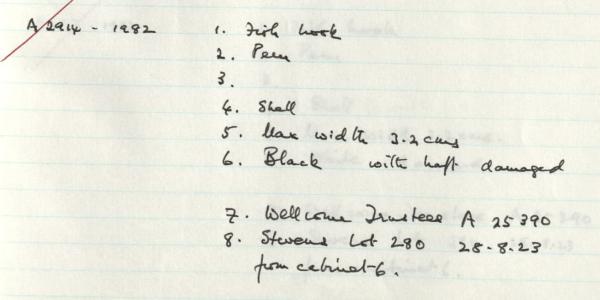 A 2914 - 1982 1. Fish hook
2. Peru
3.
4. Shell
5. Max width 3.2 cms
6. Black with haft damaged
7. Wellcome Trustees A 25390
8. Stevens Lot 280 28.8.23
from cabinet 6.